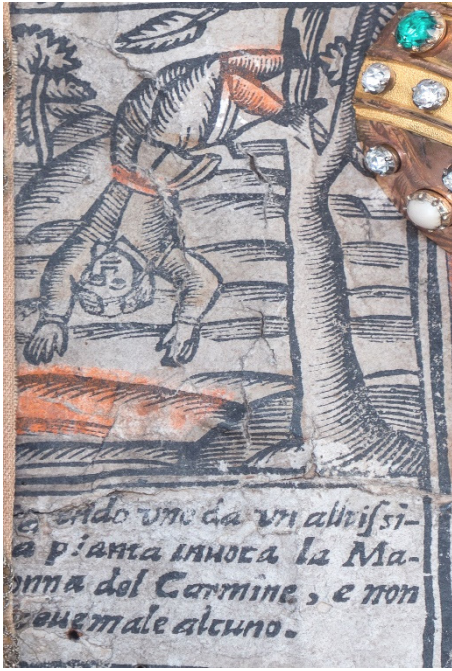 endo uno da un altissi-
a pianta inuoca la Ma-
onna del Carmine, e non
ceue male alcuno.